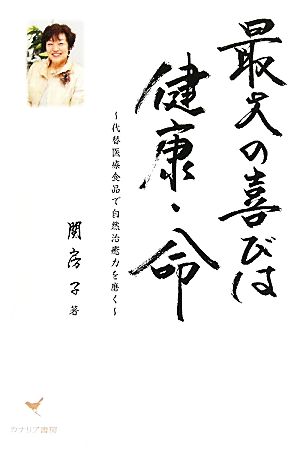 最大の喜びは
健康・命
～代替医療食品で自然治癒力を磨く～
関房子 著
カナリア書房